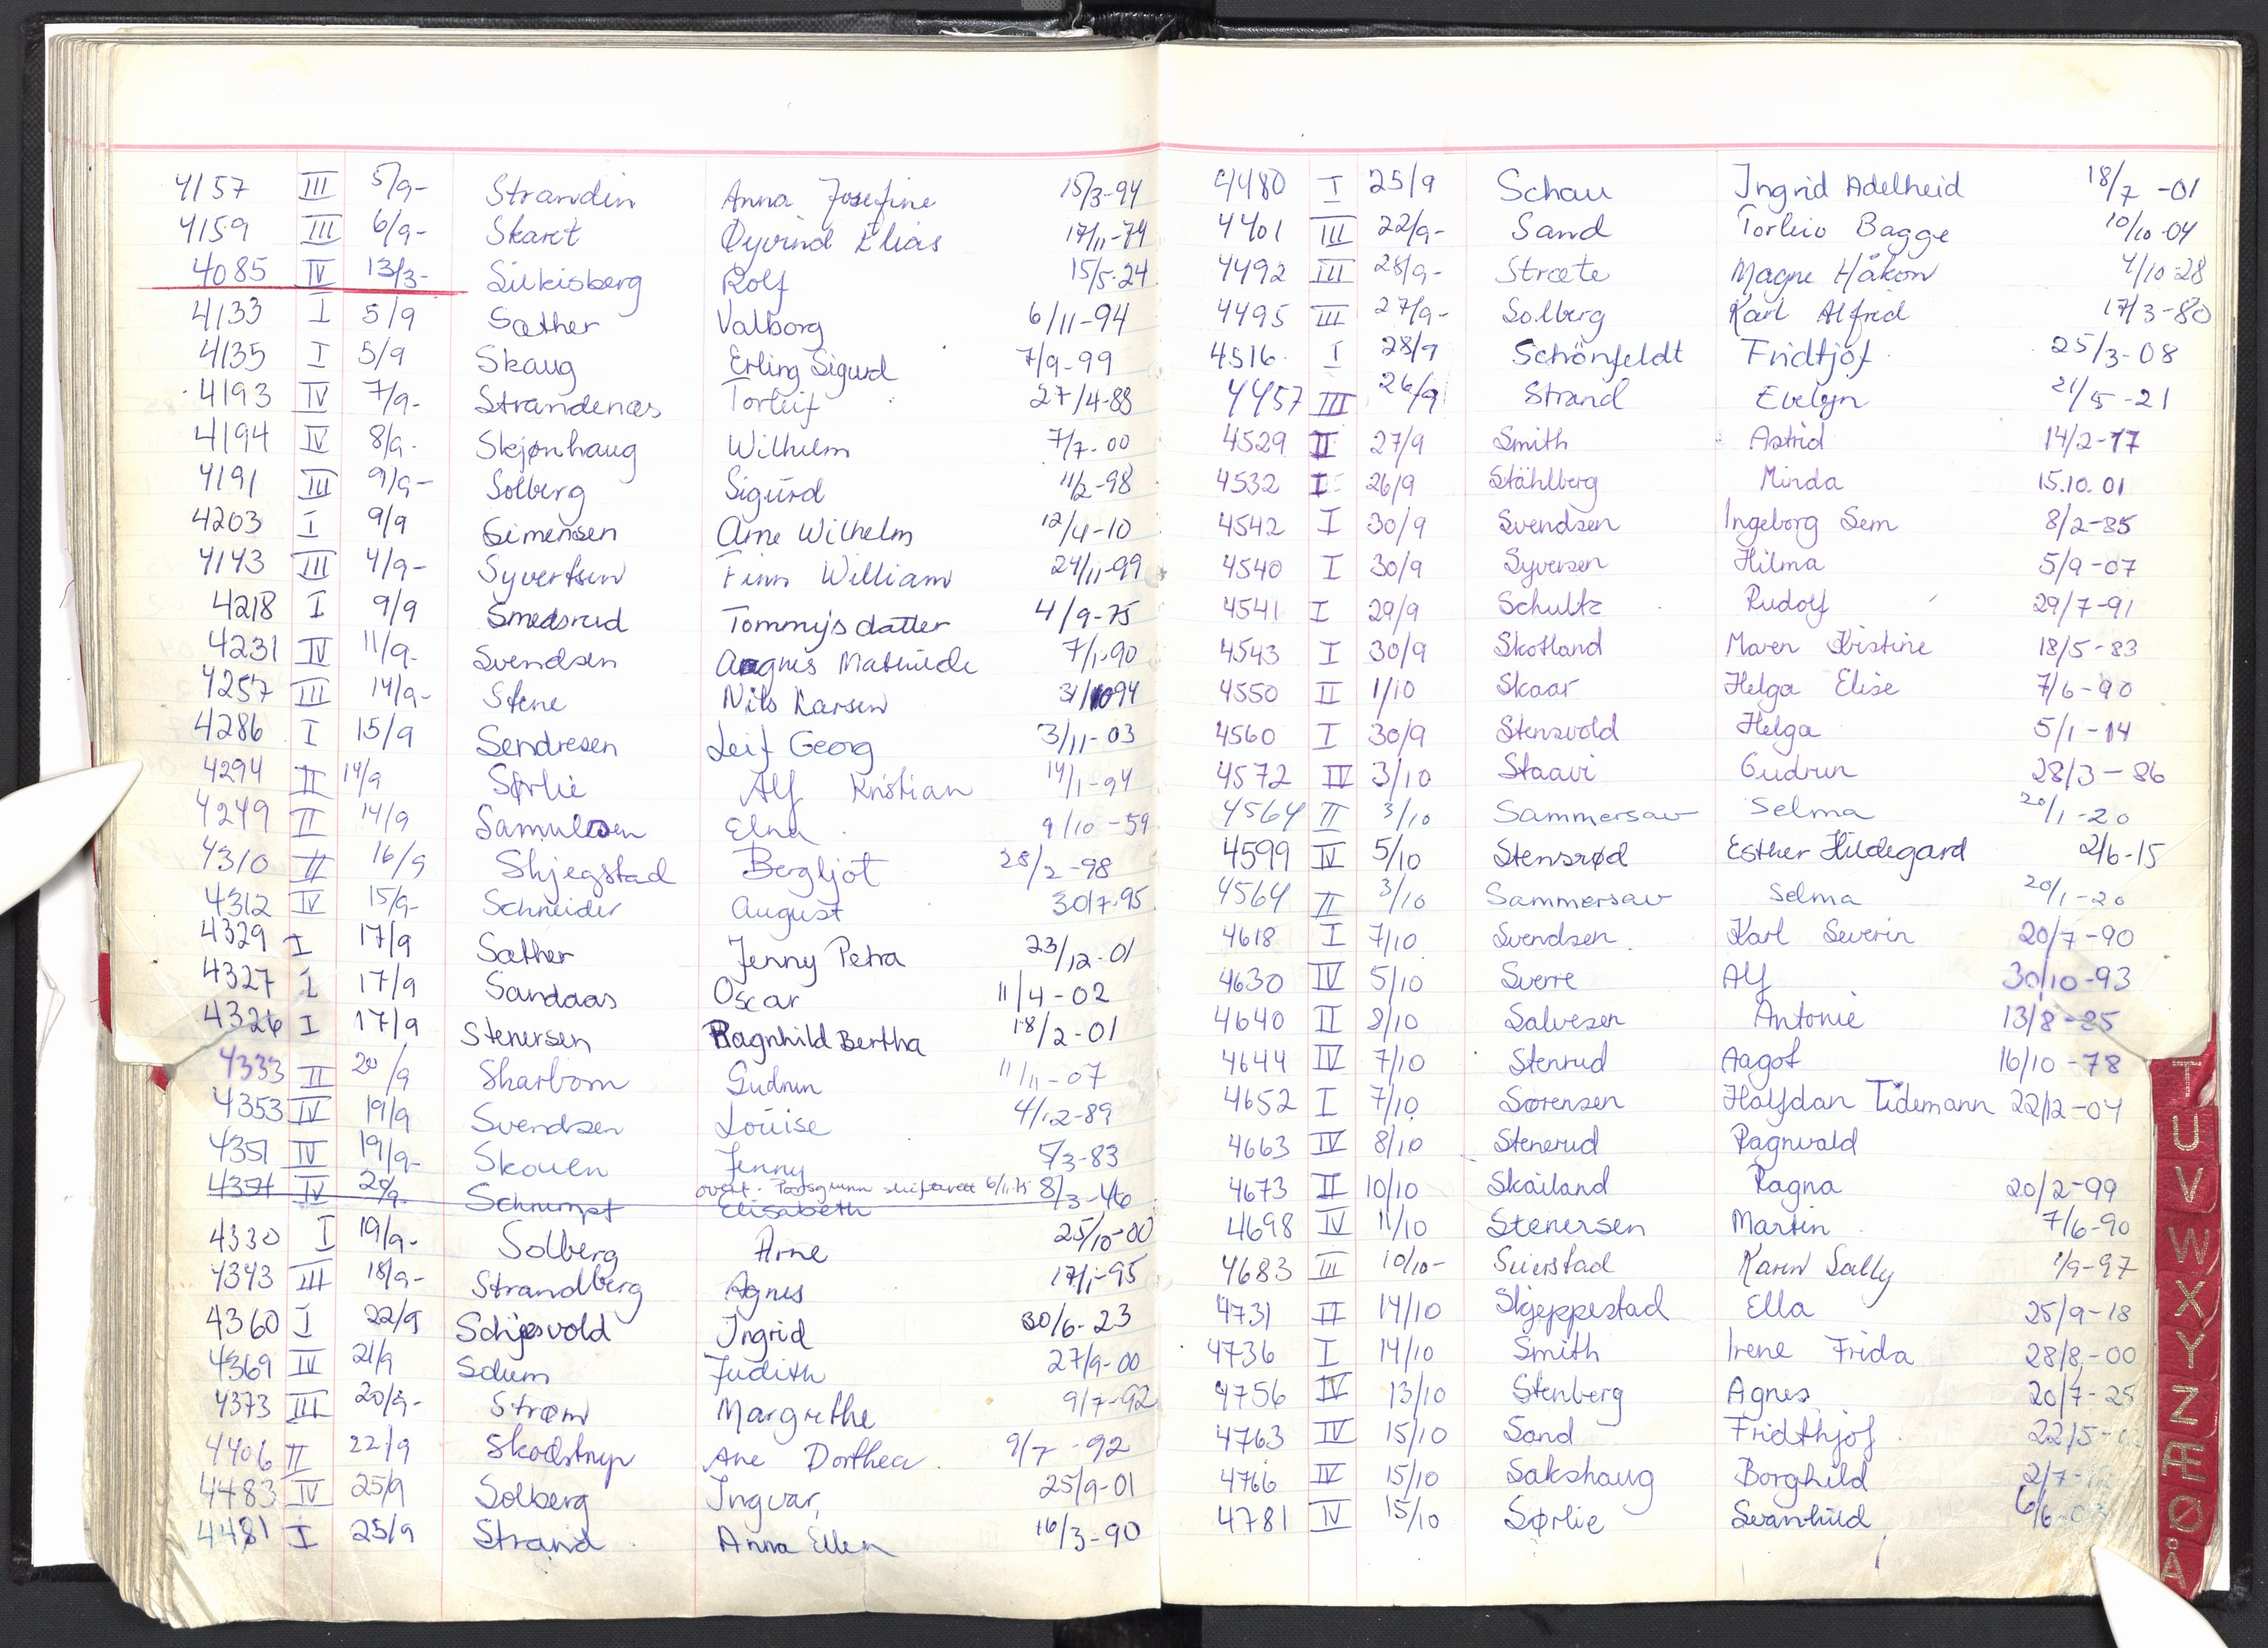 4157 III 5/9- Strandin Anna Josefine 15/3-94
4159 III 6/9- Skaret Øyvind Elias 17/11-74
4085 IV 13/3- Silkisberg Rolf 15/5-24
4133 I 5/9 Sæther Valborg 6/11-94
4135 I 5/9 Skaug Erling Sigurd 7/9-99
4193 IV 7/9- Strandenæs Torleif 27/4-88
4194 IV 8/9- Skjønhaug Wilhelm 7/7-00
4191 III 9/9- Solberg Sigurd 11/2-98
4203 I 9/9 Simensen Arne Wilhelm 12/4-10
4143 III 4/9- Syvertsen Finn William 24/11-99
4218 I 9/9 Smedsrud Tommysdatter 4/9-75
4231 IV 11/9- Svendsen Aagnes Mathilde 7/1-90
4257 III 14/9- Stene Nils Larsen 31/10 94
4286 I 15/9 Sendresen Leif Georg 3/11-03
4294 II 14/9 Sørlie Alf Kristian 14/1-94
4249 II 14/9 Samuelsen Elna 9/10-59
4310 II 16/9 Skjegstad Bergljot 28/2-98
4312 IV 15/9- Schneider August 30/7-95
4329 I 17/9 Sæther Jenny Petra 23/12-01
4327 I 17/9 Sandaas Oscar 11/4-02
4326 I 17/9 Stenersen Ragnhild Bertha 18/2-01
4333 II 20/9 Skarbom Gudrun 11/11-07
4353 IV 19/9 Svendsen Louise 4/12-89
4351 IV 19/9- Skouen Jenny 5/3-83
overt. Porsgrunn skifterett 6/11-75
4354 IV 20/9- Schrumpf Elisabeth 8/3-46
4330 I 19/9- Solberg Arne 25/10-00
4343 III 18/9- Strandberg Agnes 17/1-95
4360 I 22/9 Schjesvold Ingrid 30/6-23
4369 IV 21/9 Solum Judith 27/9-00
4373 III 20/9- Strøm Margrethe 9/7-92
4406 II 22/9 Skodstrup Ane Dorthea 9/7-92
4483 IV 25/9 Solberg Ingvar 25/9-01
4481 I 25/9 Strand Anna Ellen 16/3-90
4480 I 25/9 Schau Ingrid Adelheid 18/7-01
4401 III 22/9- Sand Torleiv Bagge 10/10-04
4492 III 28/9- Stræte Magne Håkon 4/10-28
4495 III 27/9- Solberg Karl Alfred 17/3-80
4516 I 28/9 Schönfeldt Fridtjof 25/3-08
4457 III 26/9 Strand Evelyn 21/5-21
4529 II 27/9 Smith Astrid 14/2-17
4532 I 26/9 Ståhlberg Minda 15.10.01
4542 I 30/9 Svendsen Ingeborg Sem 8/2-85
4540 I 30/9 Syversen Hilma 5/9-07
4541 I 29/9 Schultz Rudolf 29/7-91
4543 I 30/9 Skotland Maren Kristine 18/5-83
4550 II 1/10 Skaar Helga Elise 7/6-90
4560 I 30/9 Stensvold Helga 5/1-14
4572 IV 3/10 Staavi Gudrun 28/3-86
4564 II 3/10 Sammersav Selma 20/1-20
4599 IV 5/10 Stensrød Esther Hildegard 2/6-15
4564 II 3/10 Sammersav Selma 20/1-20
4618 I 7/10 Svendsen Karl Severin 20/7-90
4630 IV 5/10 Sverre Alf 30/10-93
4640 II 8/10 Salvesen Antonie 13/8-85
4644 IV 7/10 Stenrud Aagot 16/10-78
4652 I 7/10 Sørensen Halfdan Tidemann 22/12-04
4663 IV 8/10 Stenerud Ragnvald
4673 II 10/10 Skailand Ragna 20/2-99
4698 IV 11/10 Stenersen Martin 7/6-90
4683 III 10/10- Seierstad Karen Sally 1/9-97
4731 II 14/10 Skjeppestad Ella 25/9-18
4736 I 14/10 Smith Irene Frida 28/8-00
4756 IV 13/10 Stenberg Agnes 20/7-25
4763 IV 15/10 Sand Fridthjof 22/5-
4766 IV 15/10 Sakshaug Borghild 2/7-
4781 IV 15/10 Sørlie Svanhild 6/6-03
T
U
V
W
X
Y
Z
Æ
Ø
Å